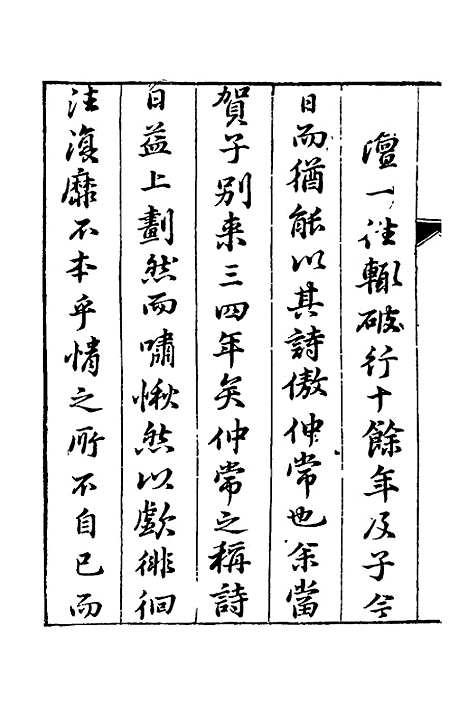 澶一往輒破行十餘年及子今
日而猶能以其詩傲仲常也余當
賀子別来三四年矣仲常之稱詩
日益上劃然而嘯愀然以歔徘徊
往復靡不本乎情之所不自已而